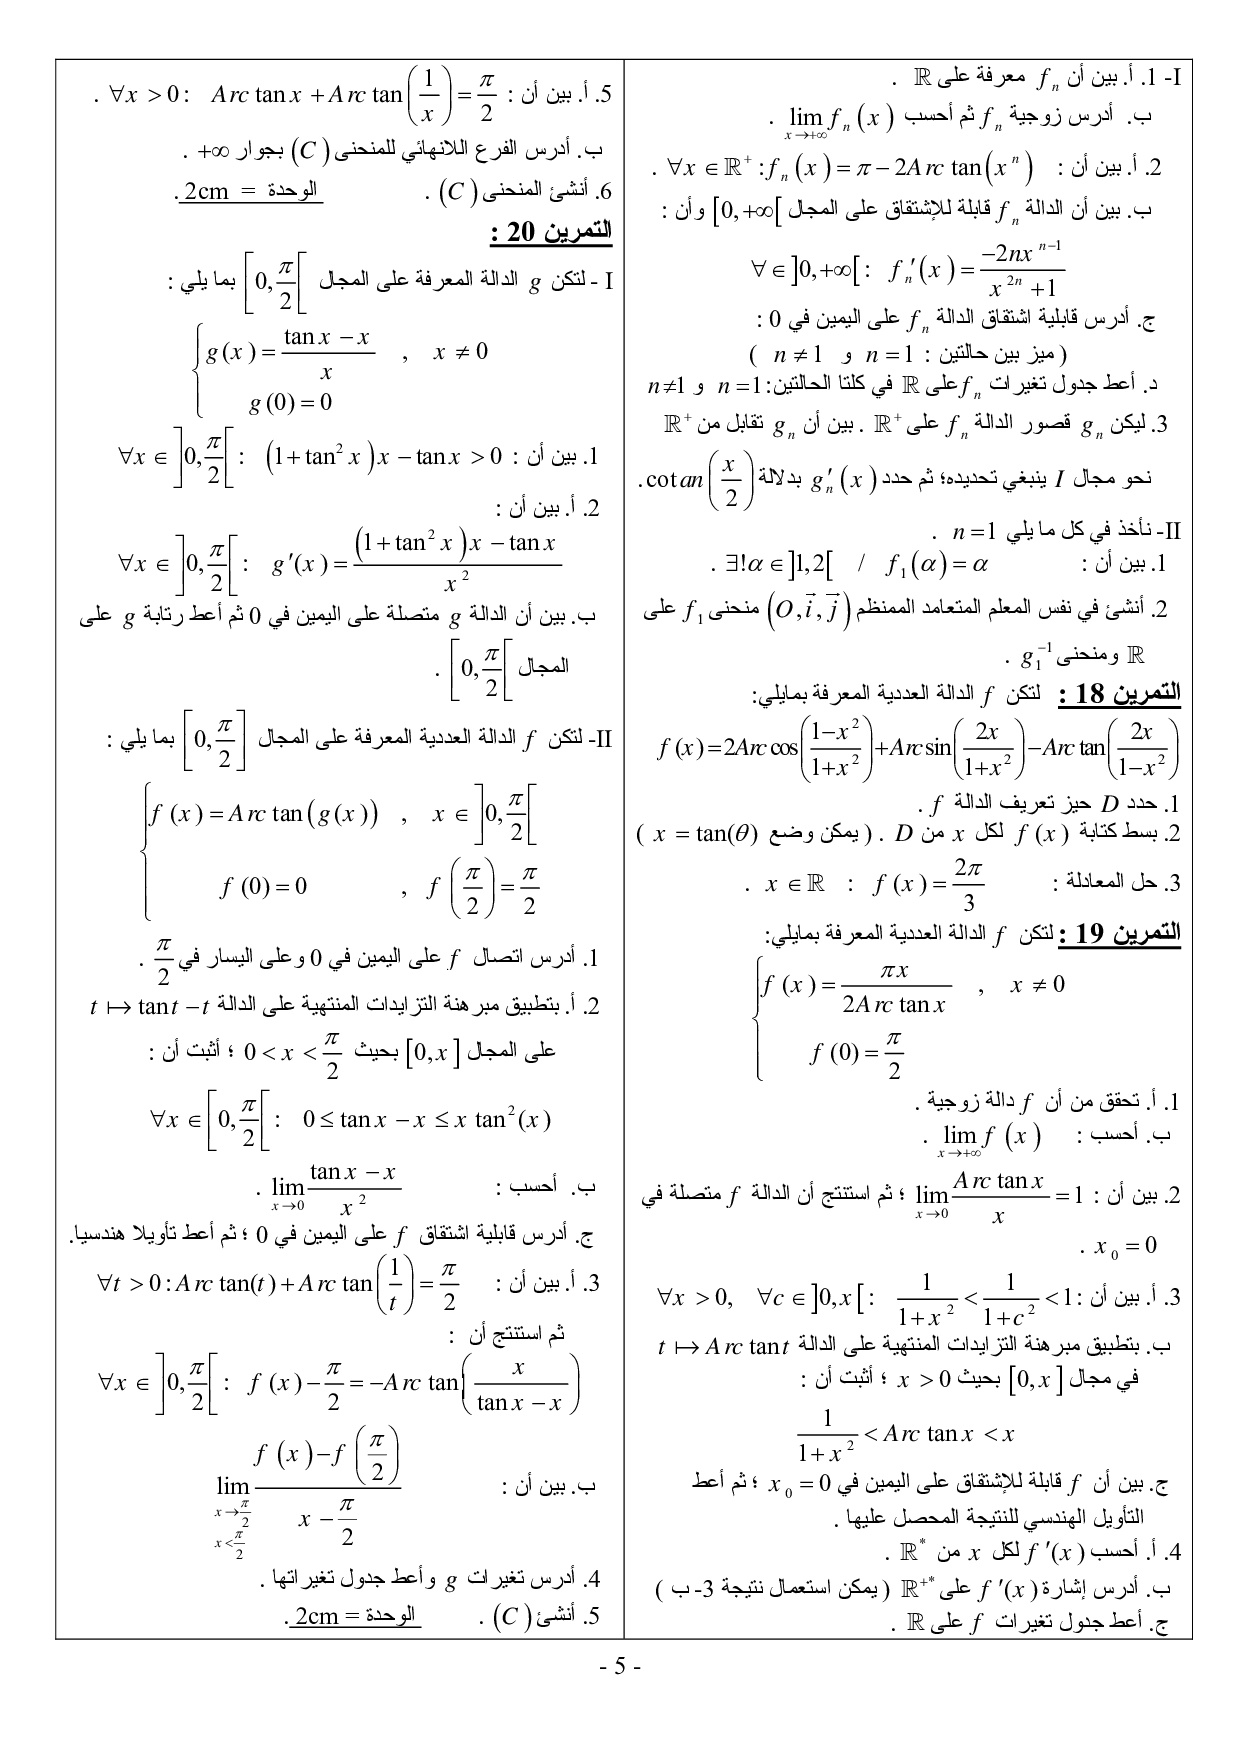 I- 1. أ. بين أن fₙ معرفة على ℝ .
ب. أدرس زوجية fₙ ثم أحسب lim_{x→+∞} fₙ(x) .
2. أ. بين أن : ∀x ∈ ℝ⁺ : fₙ(x) = π − 2Arc tan(xⁿ) .
ب. بين أن الدالة fₙ قابلة للإشتقاق على المجال [0,+∞[ وأن :
∀ ∈ ]0,+∞[ : fₙ′(x) = (−2nx^{n−1})/(x^{2n} + 1)
ج. أدرس قابلية اشتقاق الدالة fₙ على اليمين في 0 :
( ميز بين حالتين : n = 1 و n ≠ 1 )
د. أعط جدول تغيرات fₙ على ℝ في كلتا الحالتين: n = 1 و n ≠ 1
3. ليكن gₙ قصور الدالة fₙ على ℝ⁺ . بين أن gₙ تقابل من ℝ⁺
نحو مجال I ينبغي تحديده؛ ثم حدد gₙ′(x) بدلالة cotan(x/2) .
II- نأخذ في كل ما يلي n = 1 .
1. بين أن : ∃!α ∈ ]1,2[ / f₁(α) = α .
2. أنشئ في نفس المعلم المتعامد الممنظم (O, i⃗, j⃗) منحنى f₁ على
ℝ ومنحنى g₁⁻¹ .
التمرين 18 : لتكن f الدالة العددية المعرفة بمايلي:
f(x) = 2Arc cos((1−x²)/(1+x²)) + Arc sin(2x/(1+x²)) − Arc tan(2x/(1−x²))
1. حدد D حيز تعريف الدالة f .
2. بسط كتابة f(x) لكل x من D . ( يمكن وضع x = tan(θ) )
3. حل المعادلة : x ∈ ℝ : f(x) = 2π/3 .
التمرين 19 : لتكن f الدالة العددية المعرفة بمايلي:
{ f(x) = πx/(2Arc tan x) , x ≠ 0
f(0) = π/2
1. أ. تحقق من أن f دالة زوجية .
ب. أحسب : lim_{x→+∞} f(x) .
2. بين أن : lim_{x→0} (Arc tan x)/x = 1 ؛ ثم استنتج أن الدالة f متصلة في
x₀ = 0 .
3. أ. بين أن : ∀x > 0, ∀c ∈ ]0,x[ : 1/(1+x²) < 1/(1+c²) < 1
ب. بتطبيق مبرهنة التزايدات المنتهية على الدالة t ↦ Arc tan t
في مجال [0,x] بحيث x > 0 ؛ أثبت أن :
1/(1+x²) < Arc tan x < x
ج. بين أن f قابلة للإشتقاق على اليمين في x₀ = 0 ؛ ثم أعط
التأويل الهندسي للنتيجة المحصل عليها .
4. أ. أحسب f′(x) لكل x من ℝ* .
ب. أدرس إشارة f′(x) على ℝ⁺* ( يمكن استعمال نتيجة 3- ب )
ج. أعط جدول تغيرات f على ℝ .
5. أ. بين أن : ∀x > 0 : Arc tan x + Arc tan(1/x) = π/2 .
ب. أدرس الفرع اللانهائي للمنحنى (C) بجوار +∞ .
6. أنشئ المنحنى (C) . الوحدة = 2cm .
التمرين 20 :
I - لتكن g الدالة المعرفة على المجال [0, π/2[ بما يلي :
{ g(x) = (tan x − x)/x , x ≠ 0
g(0) = 0
1. بين أن : ∀x ∈ ]0, π/2[ : (1 + tan² x)x − tan x > 0
2. أ. بين أن :
∀x ∈ ]0, π/2[ : g′(x) = ((1 + tan² x)x − tan x)/x²
ب. بين أن الدالة g متصلة على اليمين في 0 ثم أعط رتابة g على
المجال [0, π/2[ .
II- لتكن f الدالة العددية المعرفة على المجال [0, π/2] بما يلي :
{ f(x) = Arc tan(g(x)) , x ∈ ]0, π/2[
f(0) = 0 , f(π/2) = π/2
1. أدرس اتصال f على اليمين في 0 وعلى اليسار في π/2 .
2. أ. بتطبيق مبرهنة التزايدات المنتهية على الدالة t ↦ tan t − t
على المجال [0,x] بحيث 0 < x < π/2 ؛ أثبت أن :
∀x ∈ [0, π/2[ : 0 ≤ tan x − x ≤ x tan²(x)
ب. أحسب : lim_{x→0} (tan x − x)/x² .
ج. أدرس قابلية اشتقاق f على اليمين في 0 ؛ ثم أعط تأويلا هندسيا.
3. أ. بين أن : ∀t > 0 : Arc tan(t) + Arc tan(1/t) = π/2
ثم استنتج أن :
∀x ∈ ]0, π/2[ : f(x) − π/2 = −Arc tan(x/(tan x − x))
ب. بين أن : lim_{x→π/2, x<π/2} (f(x) − f(π/2))/(x − π/2)
4. أدرس تغيرات g وأعط جدول تغيراتها .
5. أنشئ (C) . الوحدة = 2cm .
- 5 -